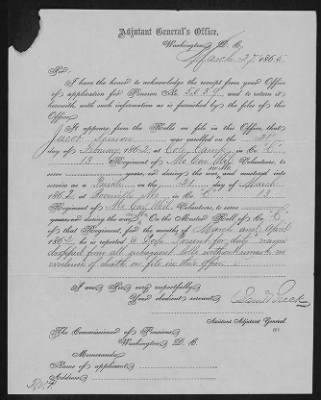 Adjutant General's Office,
Washington, D. C.,
March 27, 1865
Sir:
I have the honor to acknowledge the receipt from your Office
of application for Pension No. 5839, and to return it
herewith, with such information as is furnished by the files of this
Office.
It appears from the Rolls on file in this Office, that
Jacob was enrolled on the
day of February, 1862, at Cole Camp, in Co. "C",
13 Regiment of Mo. Cav. Volunteers, to
serve years, or during the war, and mustered into
service as a on the day of March,
1862, at , Mo., in Co. "C", 13
Regiment of Mo. Cav. Volunteers, to serve
years, or during the war. On the Muster Roll of Co. "C",
of that Regiment, for the months of March and April,
1862, he is reported
dropped from all subsequent Rolls without remark no
evidence of death on file in this office
I am, Sir, very respectfully,
Your obedient servant,
Assistant Adjutant General.
The Commissioner of Pensions,
Washington, D. C.
Memoranda:
Name of applicant,
Address,